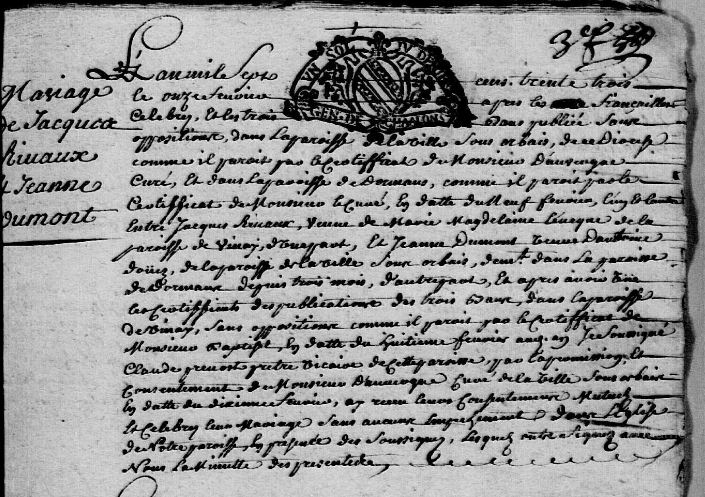 Mariage
de Jacques
Rivaux
& Jeanne
Dumont
L'an mil Sept cens trente trois
le onze fevrier apres les fiançailles
Celebrez, et les trois Bans publiée Sans
oppositions, dans la paroisse de la ville Sous orbais, de ce Diocese
comme il paroit par le Certifficat de Monsieur Dauvergne
Curé, Et dans la paroisse de Dormans, comme il paroit par le
Certifficat de Monsieur le Curé, En datte du Neuf fevrier,
Entre Jacques Rivaux, veuve de Marie Magdelaine Leveque de la
paroisse de Vinay, d'une part, Et Jeanne Dumont veuve D'antoine
de la paroisse de la ville Sous orbais, demt dans la paroisse
de Dormans depuis trois mois, d'autre part, Et apres avoir
les Certifficats des publications des trois Bans, dans la paroisse
de Vinay, Sans oppositions comme il paroit par le Certifficat de
Monsieur Baptist, En datte du huitieme fevrier, Je Soussigné
Claude prevost pretre vicaire de Cette paroisse, par la permission, Et
Consentement de Monsieur Dauvergne Curé de la ville Sous orbais
En datte du dixieme fevrier, ay receu leurs Consentemens Mutuels
Et Celebrez leur Mariage Sans aucuns Empechement dans L'Eglise
de Notre paroisse, En presence des Soussignez, Lesquels ont Signez avec
Nous La Minutte des presentes